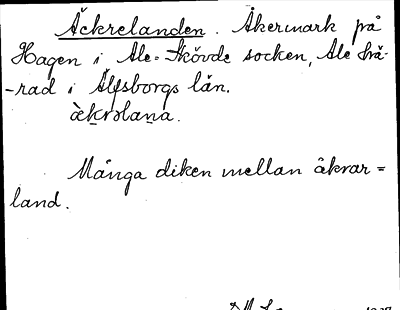 Äckrelanden. Åkermark på
Hagen i Ale-Skövde socken, Ale hä-
-rad i Älfsborgs län.
àk̬rəlana.
Många diken mellan åkrar =
land.